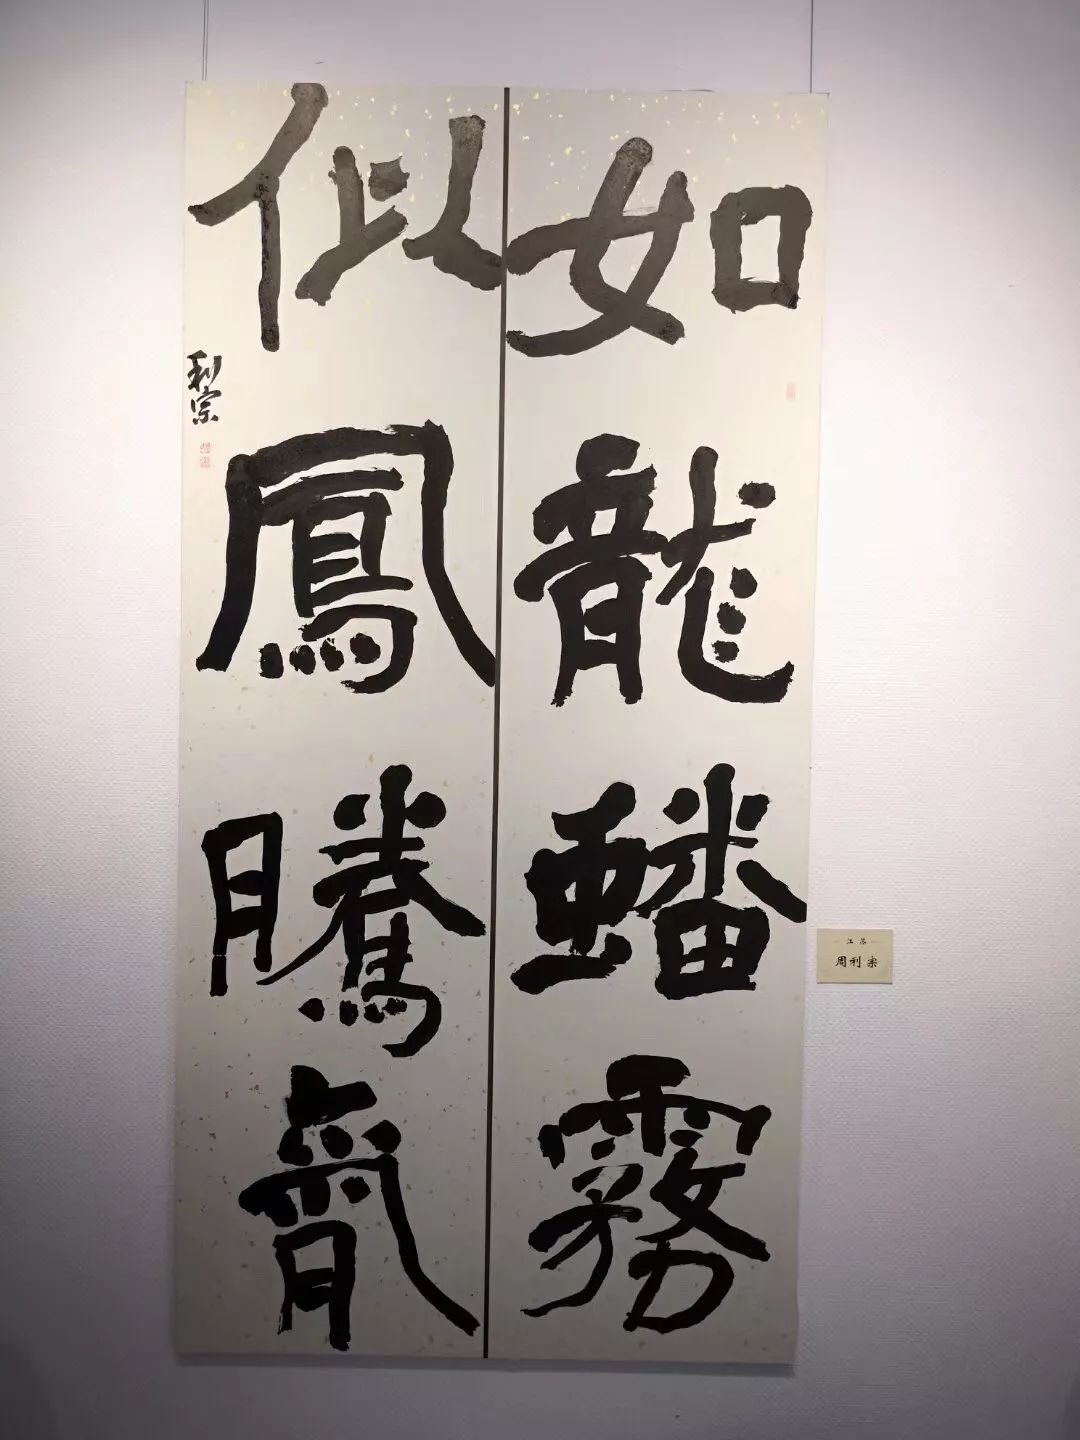 如龍蟠霧
似鳳騰
利宗
江苏
周利宗